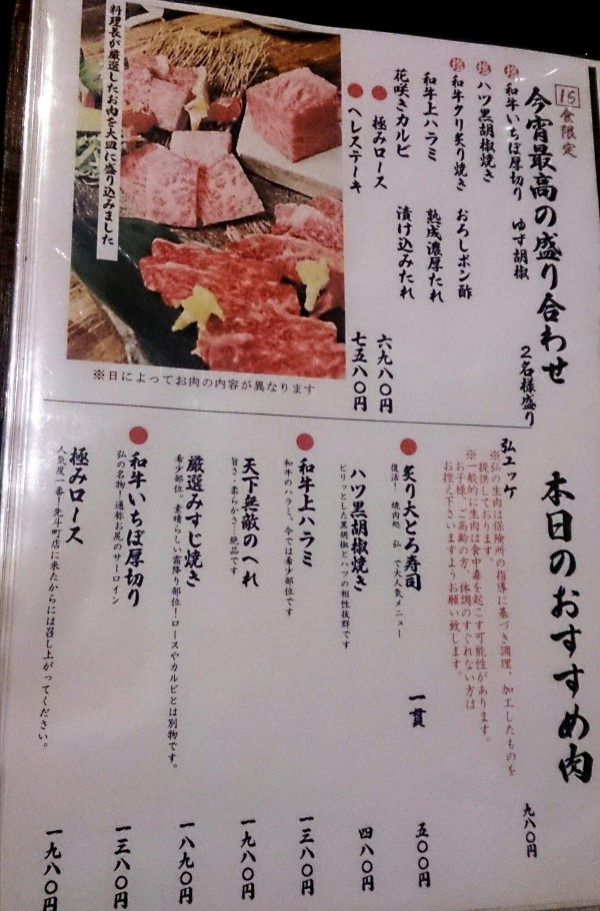 15食限定
今宵最高の盛り合わせ 2名様盛り
塩 和牛いちぼ厚切り ゆず胡椒
塩 ハツ黒胡椒焼き
塩 和牛クリ炙り焼き おろしポン酢
和牛上ハラミ 熟成濃厚たれ
花咲きカルビ 漬け込みたれ
極みロース 六九八〇円
ヘレステーキ 七五八〇円
料理長が厳選したお肉を大皿に盛り込みました
※日によってお肉の内容が異なります
本日のおすすめ肉
弘ユッケ 九八〇円
※弘の生肉は保険所の指導に基づき調理、加工したものを
提供しております。
※一般的に生肉は食中毒を起こす可能性があります。
お子様、ご高齢の方、体調のすぐれない方は
お控え下さいますようお願い致します。
炙り大とろ寿司 一貫 五〇〇円
復活！ 焼肉処 弘 で大人気メニュー
ハツ黒胡椒焼き 四八〇円
ピリッとした黒胡椒とハツの相性抜群です
和牛上ハラミ 一三八〇円
和牛のハラミ。今では希少部位です
天下無敵のへれ 一九八〇円
旨さ・柔らかさ…絶品です
厳選みすじ焼き 一八九〇円
希少部位。素晴らしい霜降り部位！ロースやカルビとは別物です。
和牛いちぼ厚切り 一三八〇円
弘の名物！通称お尻のサーロイン
極みロース 一九八〇円
人気度一番！先斗町店に来たからには召し上がってください。